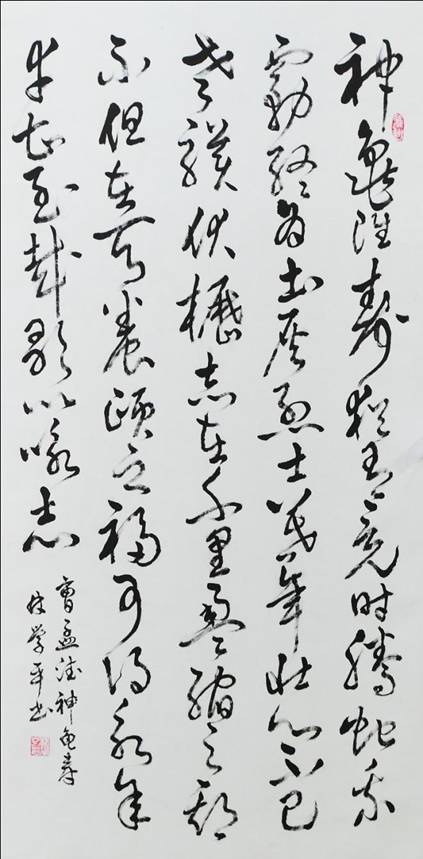 神龜雖壽猶有竟時騰蛇乘
霧終為土灰烈士暮年壯心不已
老驥伏櫪志在千里盈縮之期
不但在天養頤之福可得永年
幸甚至哉歌以詠志
曹孟德神龜壽
學平書